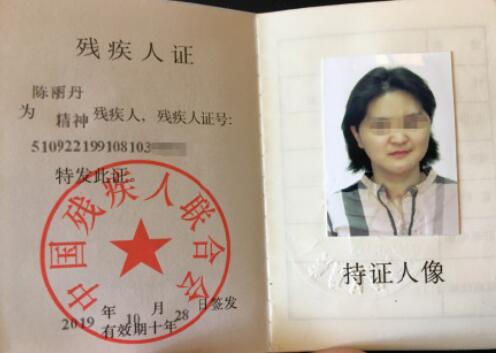 残疾人证
陈丽丹
为 精神 残疾人，残疾人证号：
510922199108103
特发此证。
中国残疾人联合会
2019 年 10 月 28 日签发
有效期十年
持证人像